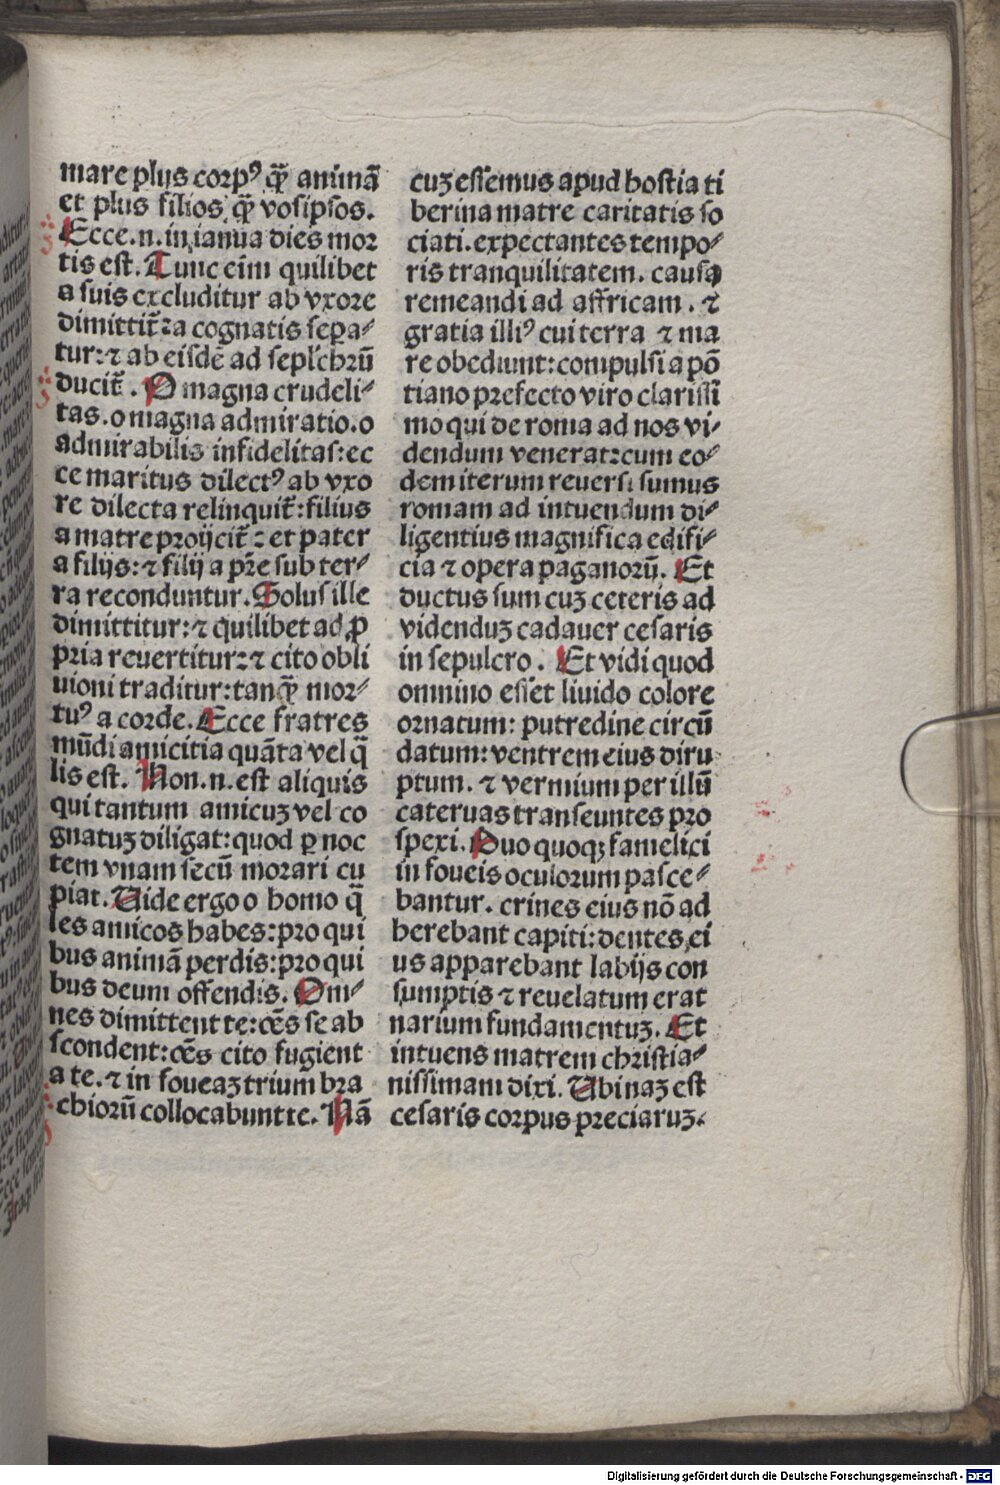 mare plus corpꝰ qᷓ͂ animā
et plus filios qᷓ͂ vosipsos.
Ecce.n.in ianua dies mor
tis est. Tunc eīm quilibet
a suis excluditur ab vxore
dimittit̄: a cognatis sepa⸗
tur: ⁊ ab eisdē ad sepl'chrū
ducit̄. O magna crudeli⸗
tas. o magna admiratio. o
admirabilis infidelitas: ec
ce maritus dilectꝰ ab vxo
re dilecta relinquit̄: filius
a matre proijcit̄: et pater
a filijs: ⁊ filij a pr̄e sub ter⸗
ra reconduntur. Solus ille
dimittitur: ⁊ quilibet ad ꝓ
pria reuertitur: ⁊ cito obli
uioni traditur: tanqᷓ͂ mor⸗
tuꝰ a corde. Ecce fratres
mūdi amicitia quāta vel q̄
lis est. Non.n.est aliquis
qui tantum amicuʒ vel co
gnatuʒ diligat: quod ꝑ noc
tem vnam secū morari cu
piat. Uide ergo o homo q̄
les amicos habes: pro qui
bus animā perdis: pro qui
bus deum offendis. Om⸗
nes dimittent te: oēs se ab
scondent: oēs cito fugient
a te. ⁊ in foueaʒ trium bra
chiorū collocabunt te. Nā
cuʒ essemus apud hostia ti
berina matre caritatis so
ciati. expectantes tempo⸗
ris tranquilitatem. causa
remeandi ad affricam. ⁊
gratia illiꝰ cui terra ⁊ ma
re obediunt: compulsi a pō
tiano prefecto viro clarissi
mo qui de roma ad nos vi⸗
dendum venerat: cum eo⸗
dem iterum reuersi sumus
romam ad intuendum di⸗
ligentius magnifica edifi⸗
cia ⁊ opera paganorū. Et
ductus sum cuʒ ceteris ad
videnduʒ cadauer cesaris
in sepulcro. Et vidi quod
omnino esset liuido colore
ornatum: putredine circū
datum: ventrem eius diru
ptum. ⁊ vermium per illū
cateruas transeuntes pro
spexi. Duo quoqʒ famelici
in foueis oculorum pasce⸗
bantur. crines eius nō ad
herebant capiti: dentes ei
us apparebant labijs con
sumptis ⁊ reuelatum erat
narium fundamentuʒ. Et
intuens matrem christia⸗
nissimam dixi. Ubinaʒ est
cesaris corpus preciaruʒ.
Digitalisierung gefördert durch die Deutsche Forschungsgemeinschaft - DFG